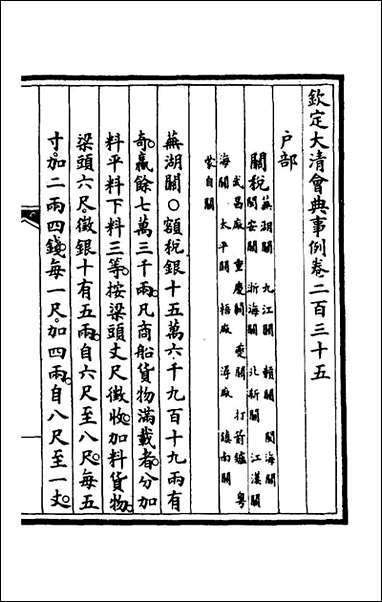 欽定大清會典事例卷二百三十五
戶部
關稅 蕪湖關 九江關 贛關 閩海關
閩安關 浙海關 北新關 江漢關
武昌廠 重慶關 夔關 打箭鑪 粵
海關 太平關 梧廠 潯廠 鎮南關
蒙自關
蕪湖關○額稅銀十五萬六千九百十九兩有
奇。贏餘七萬三千兩。凡商船貨物滿載者。分加
料平料下料三等。按梁頭丈尺徵收。加料貨物。
梁頭六尺。徵銀十有五兩。自六尺至八尺。每五
寸。加二兩四錢。每一尺。加四兩。自八尺至一丈。